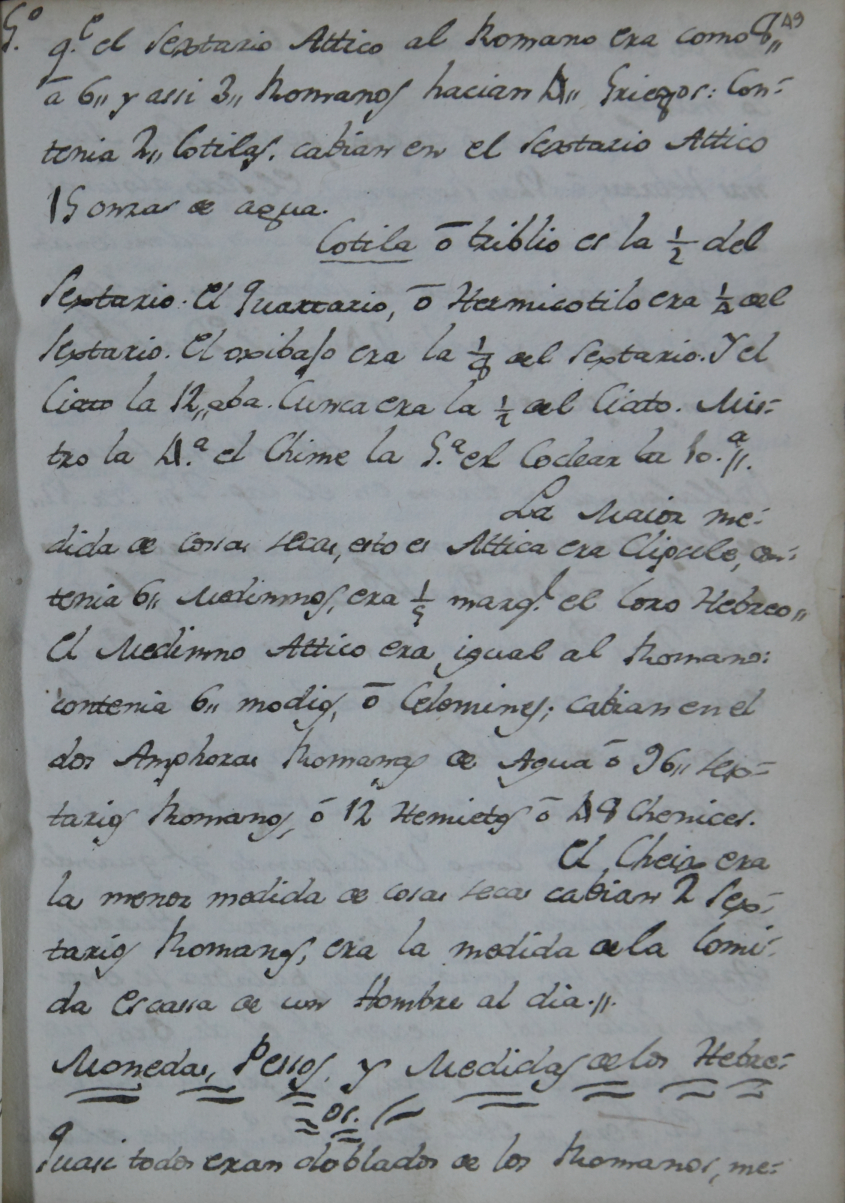 49
q.e el Sextario Attico al Romano era como 8,,
a 6,, y assi 3,, Romanos hacian 4,, Griegos: Con-
tenia 2,, Cotilas. cabian en el Sextario Attico
15 onzas de agua.
Cotila ō triblio es la 1/2 del
Sextario. El Quartario, ō Hermicotilo era 1/4 del
Sextario. El oxibafo era la 1/8 del Sextario. Y el
Ciato la 12,, aba. Cunca era la 1/2 del Ciato. Mis-
tro la 4.a el Chime la 5.a el Coclear la 10.a,,.
La Maior me-
dida de cosas secas, esto es Attica era Clipsele, con-
tenia 6,, Medimnos, era 1/5 mas q.l el Coro Hebreo,,
El Medimno Attico era igual al Romano:
contenia 6,, modios, ō Celemines; cabian en el
dos Amphoras Romanas de Agua ō 96,, Sex-
tarios Romanos, ō 12 Hemietos ō 48 Chenices.
El Cheix era
la menor medida de cosas secas cabian 2 Sex-
tarios Romanos, era la medida de la Comi-
da escassa de un Hombre al dia.,,.
Monedas, Pessos, y Medidas de los Hebre-
os.
Quasi todos eran doblados de los Romanos, me-